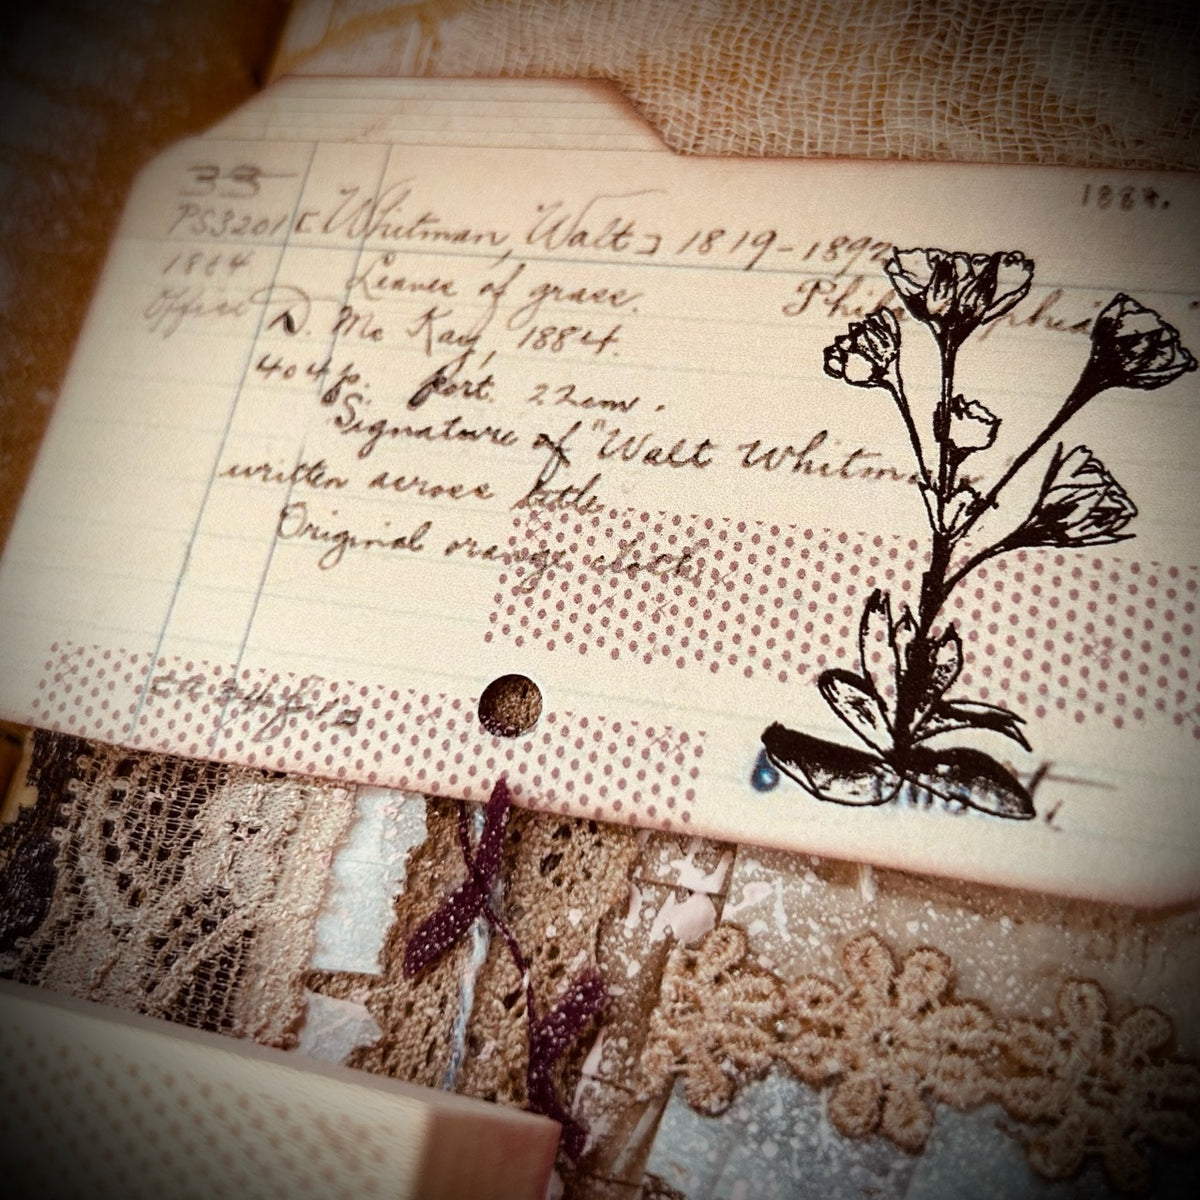 33
1884.
PS3201 [Whitman, Walt] 1819-1892
1884 Leaves of grass. Phila
Office D. McKay, 1884.
404p. port. 22cm.
Signature of "Walt Whitman
written across title
Original orange cloth